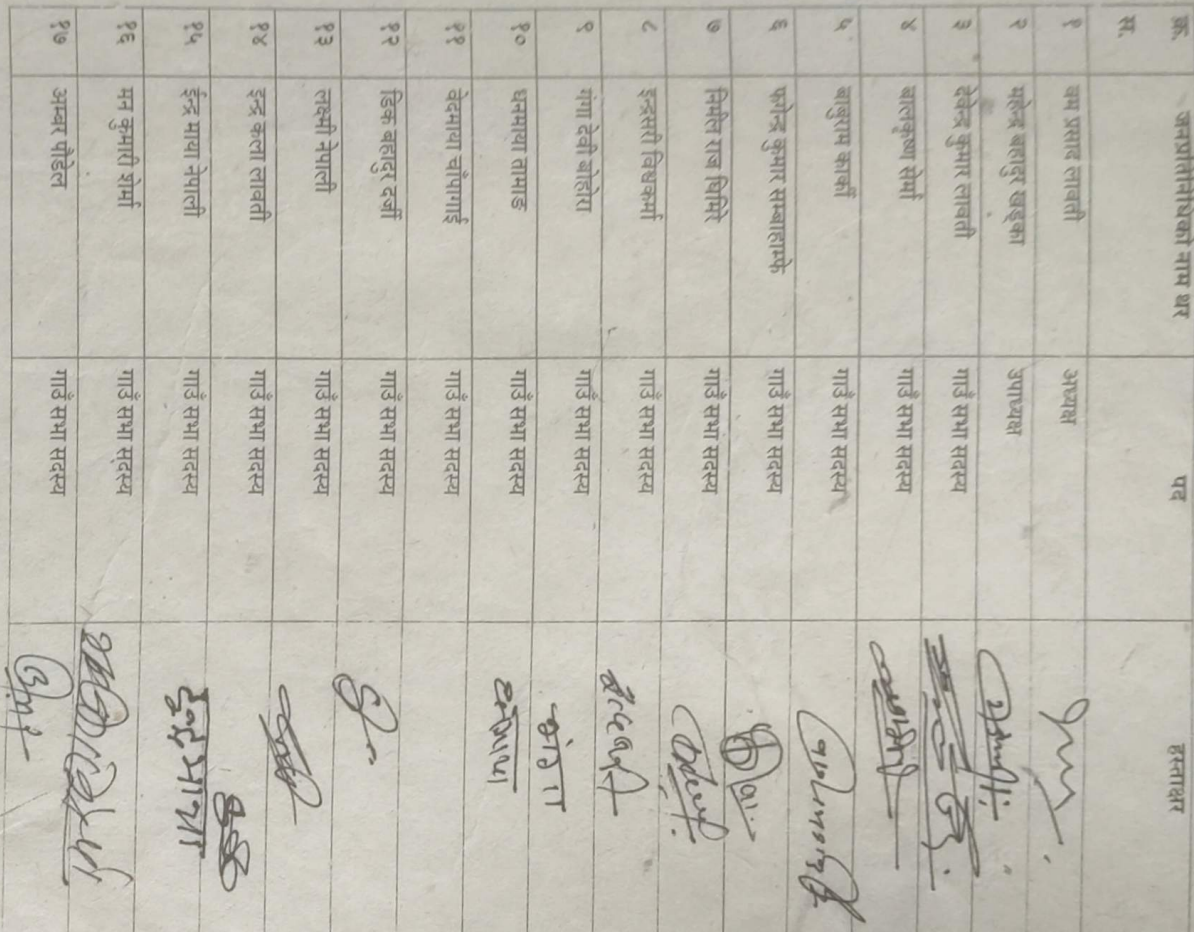 क्र. स. जनप्रतिनिधिको नाम थर पद हस्ताक्षर
१ बम प्रसाद लावती अध्यक्ष
२ महेन्द्र बहादुर खड्का उपाध्यक्ष
३ देवेन्द्र कुमार लावती गाउँ सभा सदस्य
४ बालकृष्ण सेर्मा गाउँ सभा सदस्य
५ बाबुराम कार्की गाउँ सभा सदस्य
६ फगेन्द्र कुमार सम्बाहाम्फे गाउँ सभा सदस्य
७ निर्मल राज घिमिरे गाउँ सभा सदस्य
८ इन्द्रसरी विश्वकर्मा गाउँ सभा सदस्य
९ गंगा देवी बोहोरा गाउँ सभा सदस्य गंगा
१० धनमाया तामाङ गाउँ सभा सदस्य धनमाया
११ वेदमाया चोंपागाई गाउँ सभा सदस्य
१२ डिक बहादुर दर्जी गाउँ सभा सदस्य
१३ लक्ष्मी नेपाली गाउँ सभा सदस्य
१४ इन्द्र कला लावती गाउँ सभा सदस्य
१५ ईन्द्र माया नेपाली गाउँ सभा सदस्य इन्द्रमाया
१६ मन कुमारी शेर्मा गाउँ सभा सदस्य
१७ अम्बर पौडेल गाउँ सभा सदस्य